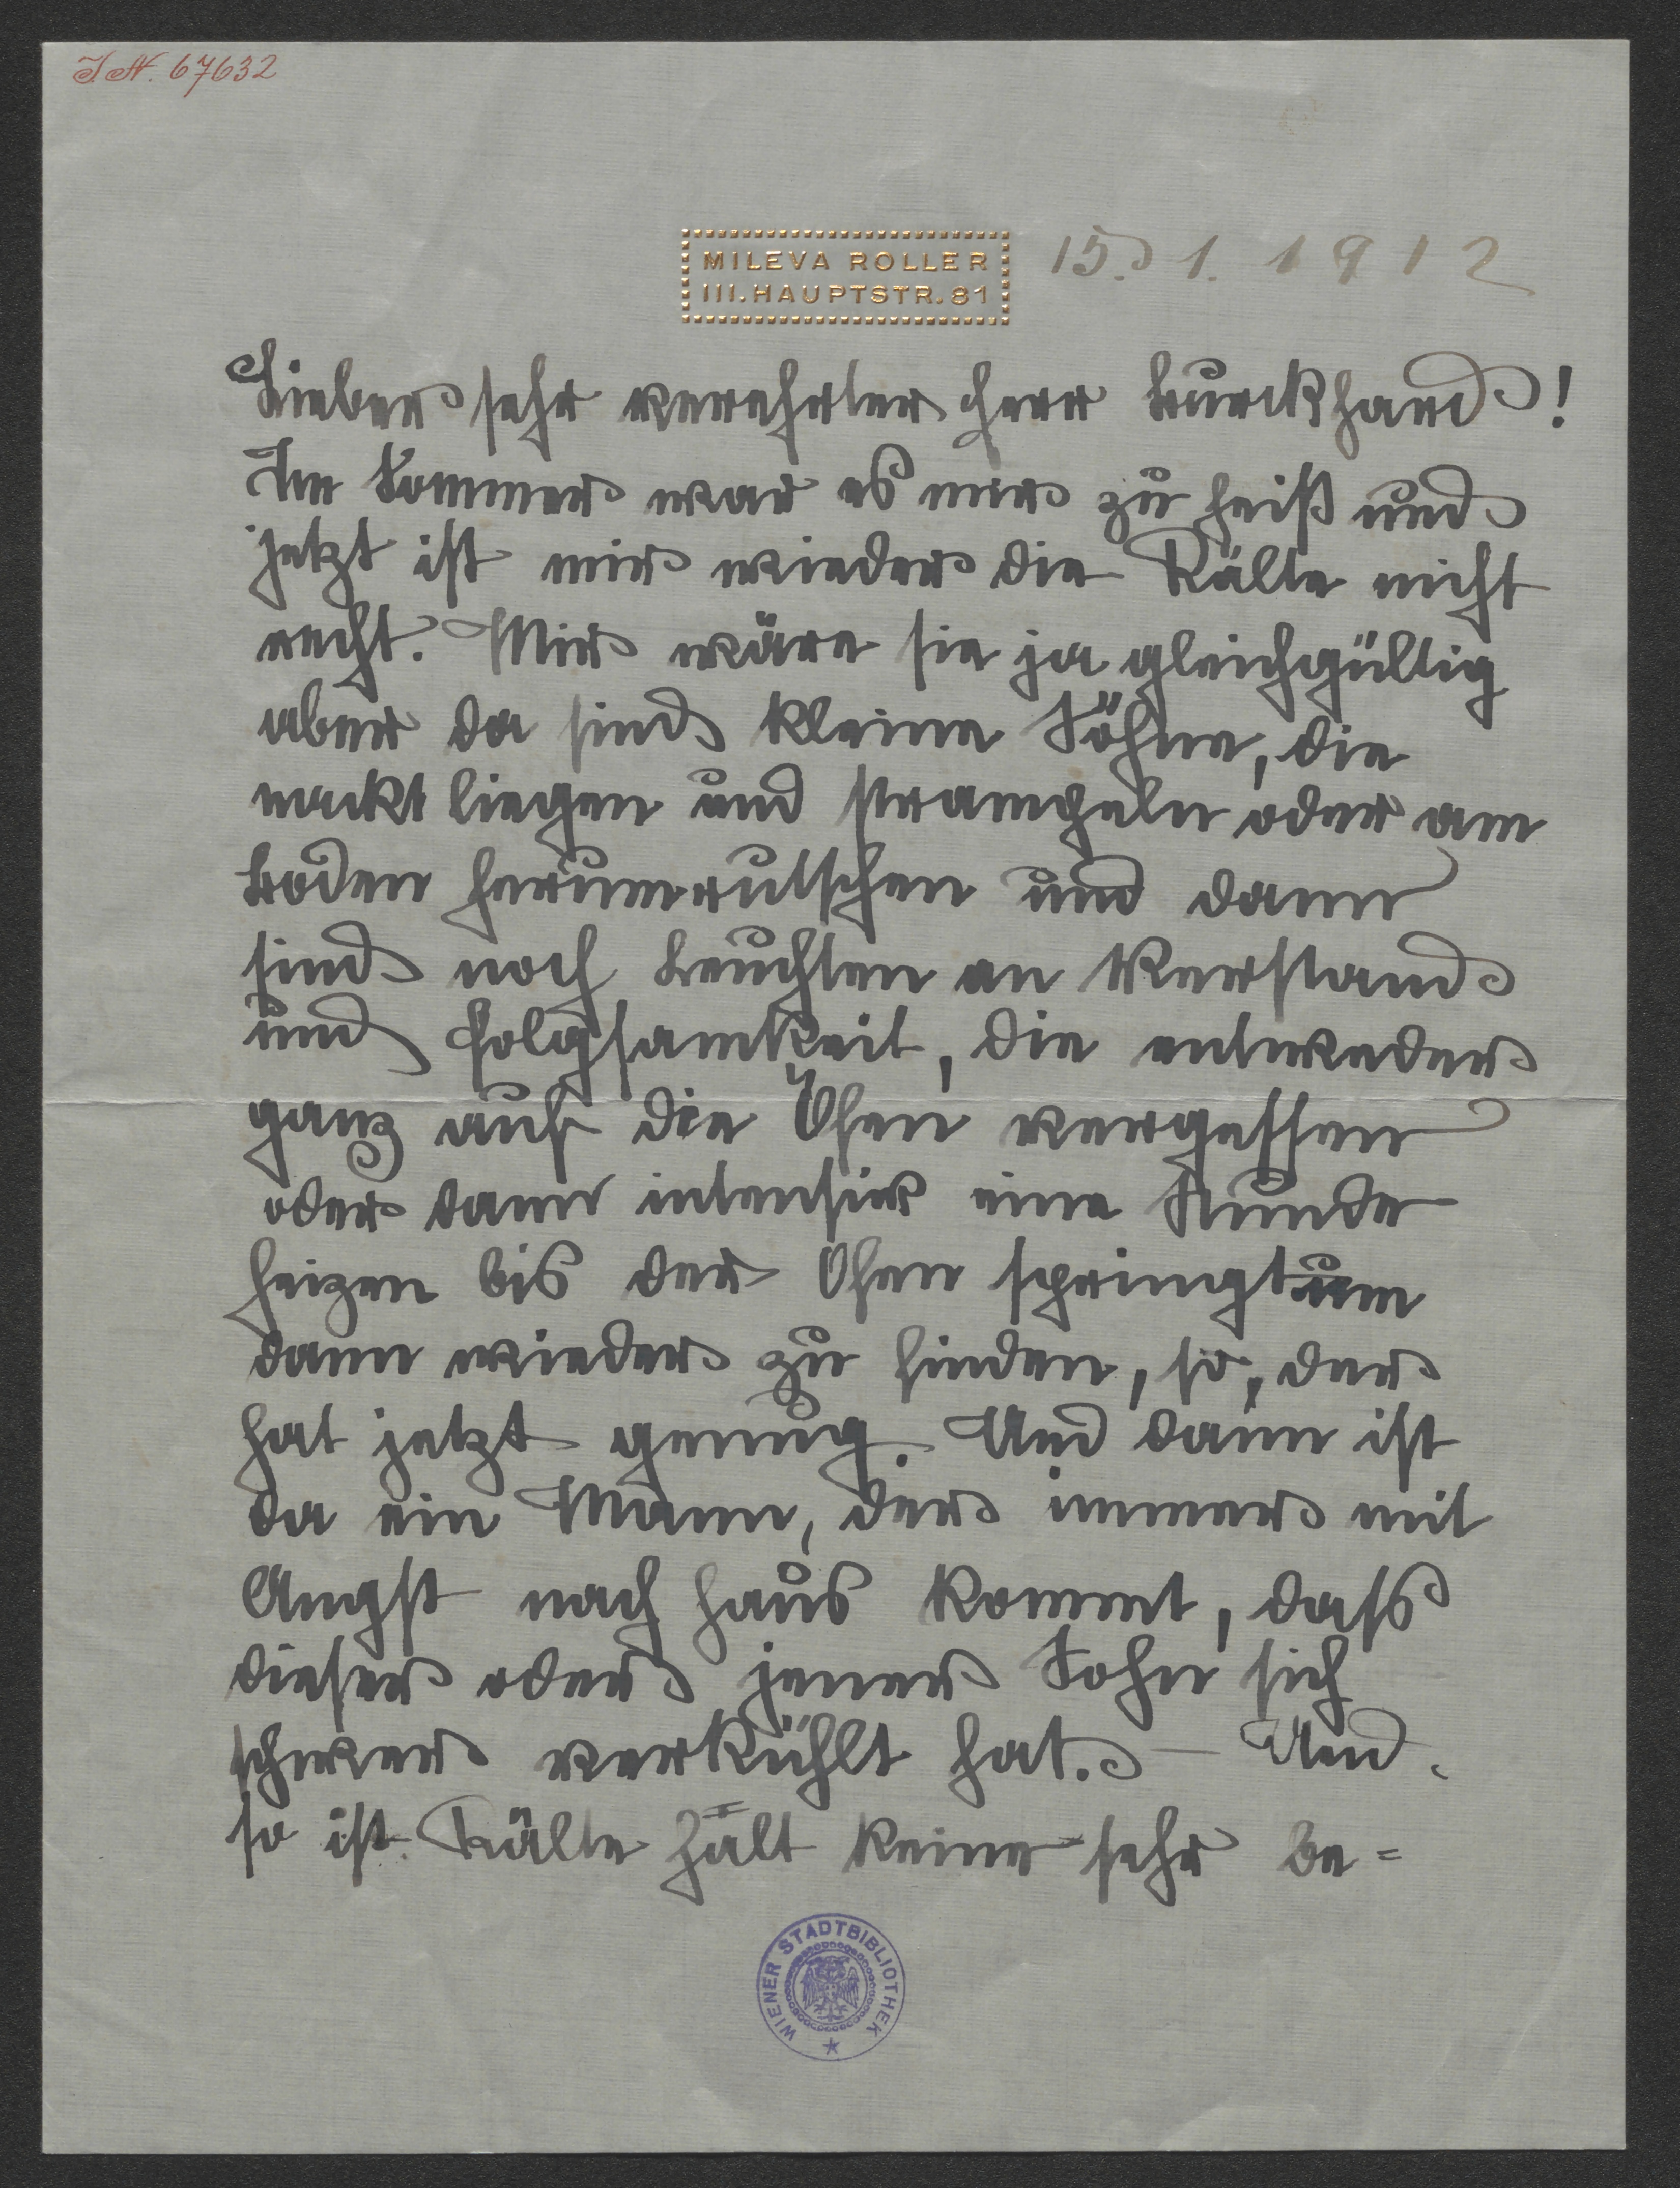 I.N. 67632
MILEVA ROLLER
III. HAUPTSTR. 81
15. 1. 1912
Lieber sehr verehrter Herr Burckhard!
Im Sommer war es mir zu heiß und
jetzt ist mir wieder die Kälte nicht
recht. Mir wäre sie ja gleichgültig
aber da sind kleine Söhne, die
nackt liegen und strampeln oder am
Boden herumrutschen und dann
sind noch Leuchten an Verstand
und Folgsamkeit, die entweder
ganz auf die Öfen vergessen
oder dann intensiv eine Stunde
heizen bis der Ofen springt um
dann wieder zu finden, so, der
hat jetzt genug. Und dann ist
da ein Mann, der immer mit
Angst nach Haus kommt, dass
dieser oder jener Sohn sich
schwer verkühlt hat. – Und
so ist Kälte hält keine sehr be=
WIENER STADTBIBLIOTHEK